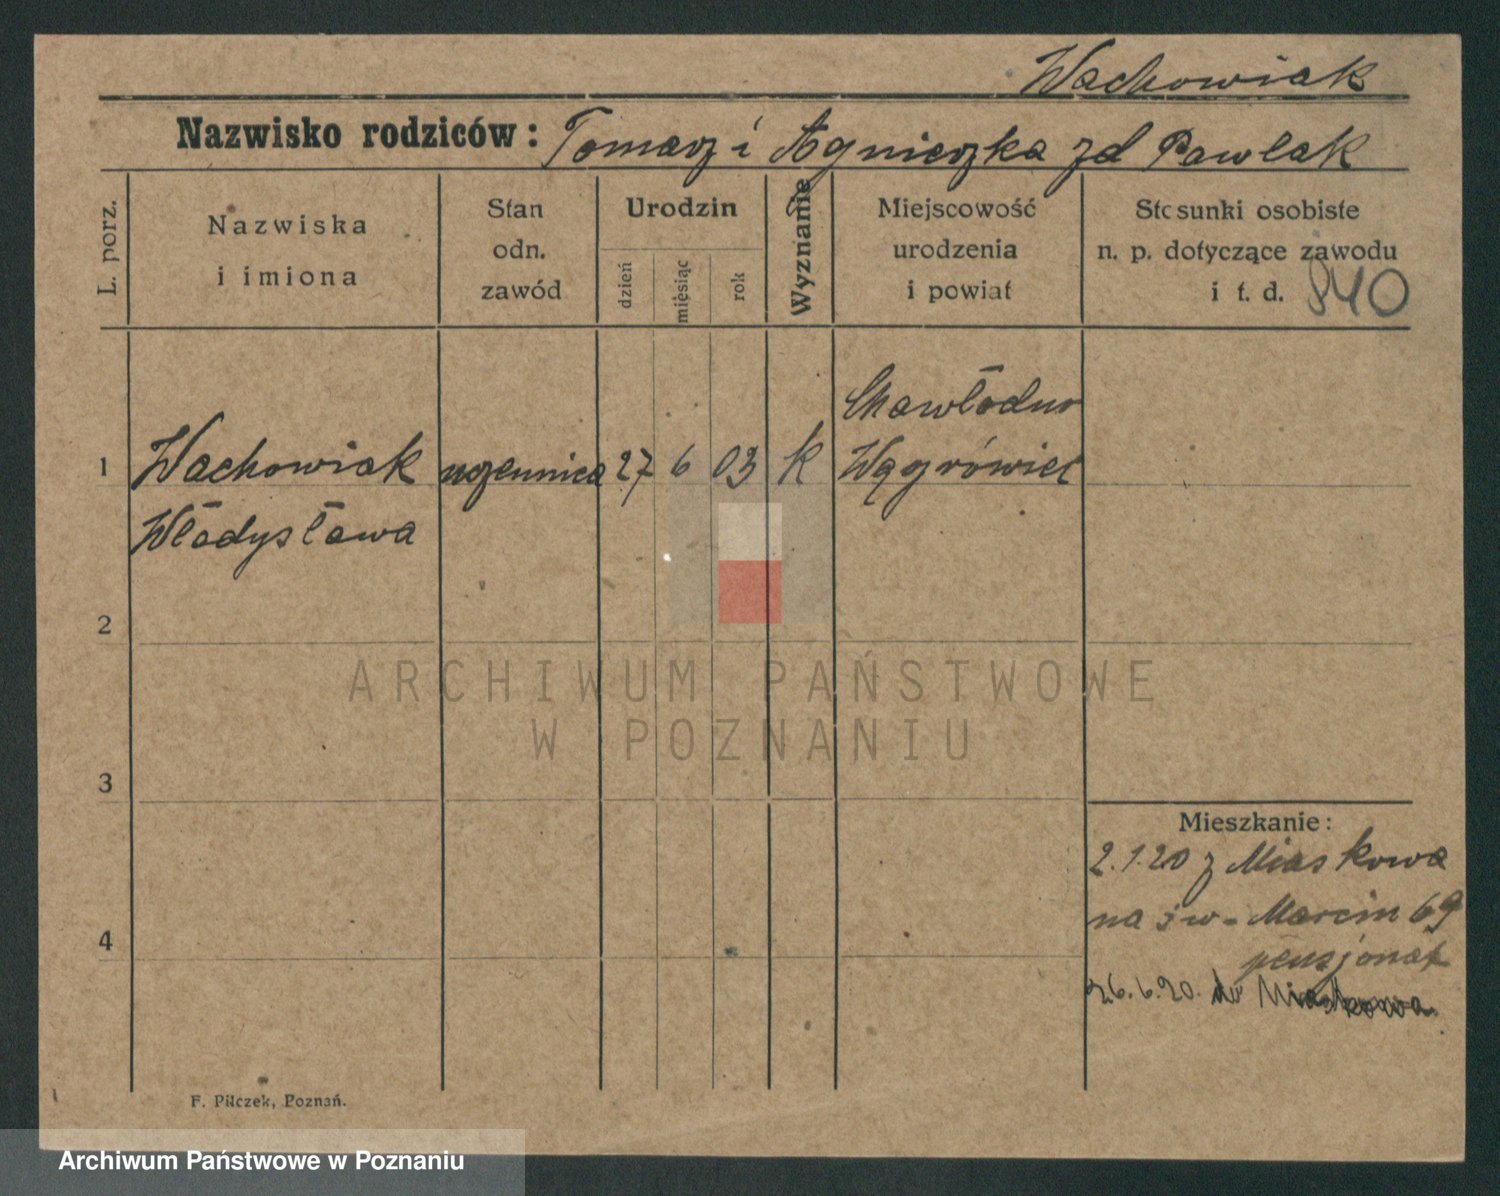 Wachowiak
Nazwisko rodziców: Tomasz i Agnieszka zd Pawlak
L. porz.
Nazwiska i imiona
Stan odn. zawód
Urodzin
dzień
miesiąc
rok
Wyznanie
Miejscowość urodzenia i powiat
Stosunki osobiste n. p. dotyczące zawodu i t. d.
840
Chawłodno
1 Wachowiak uczennica 27 6 03 k Wągrówiec
Władysława
2
ARCHIWUM PAŃSTWOWE
W POZNANIU
3
Mieszkanie:
2.1.20 z Miaskowa
na św. Marcin 69
4
pensjonat
26.6.20. do Miaskowa.
F. Pilczek, Poznań.
Archiwum Państwowe w Poznaniu